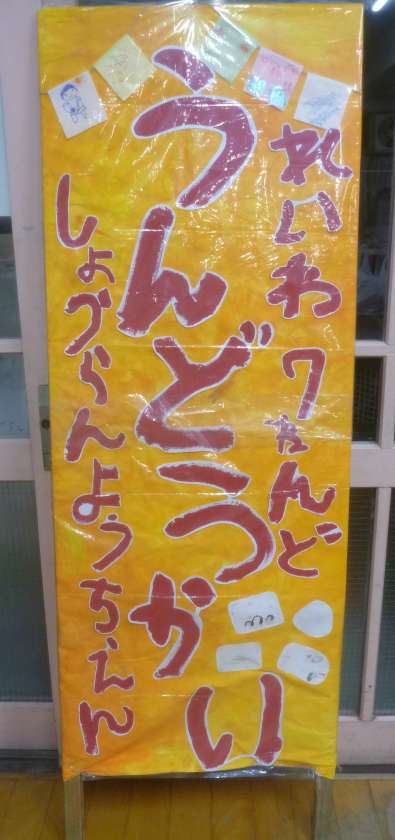 れいわ7ねんど
うんどうかい
しょうらんようちえん